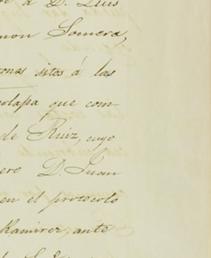 á D. Luis
mon Somera,
sitos á las
que com-
de Ruiz, cuyo
D. Juan
en el protocolo
Ramirez, ante